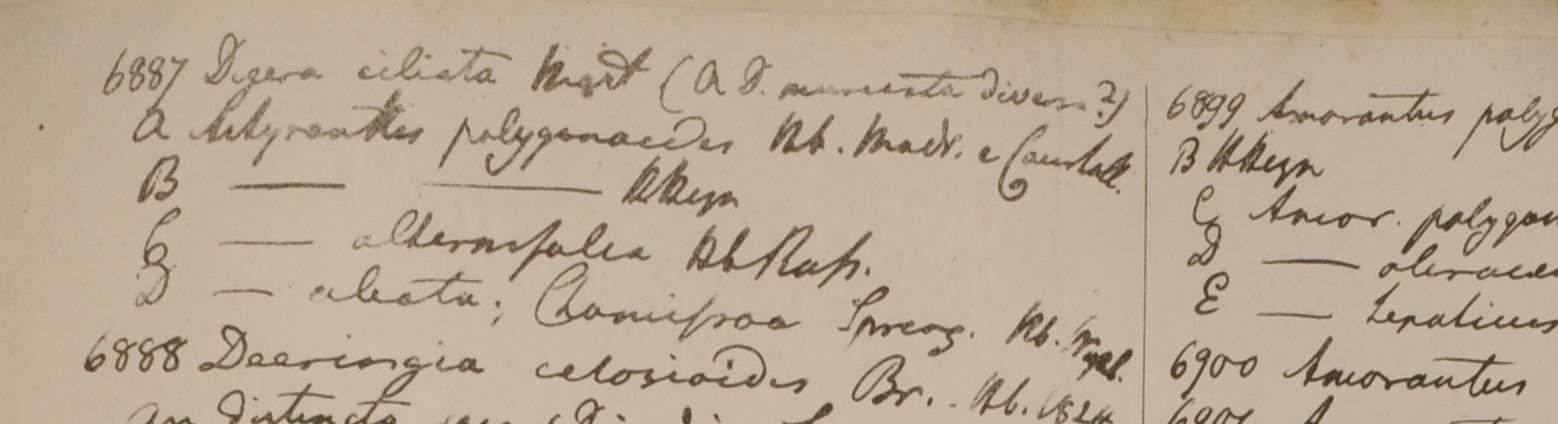 6887 Digera ciliata Wight (A D. muricata diversa?)
A Achyranthes polygonoides Hb. Madr. e
B — — H Heyn
C — alternifolia Hb Russ.
D — alcata; Chamissoa Spreng. Hb.
6888 Deeringia celosioides Br. Hb. 1824
An distincta
6899 Amarantus polyg
B H Heyn
C Amar. polygon
D — olerace
E — hepaticus
6900 Amarantus